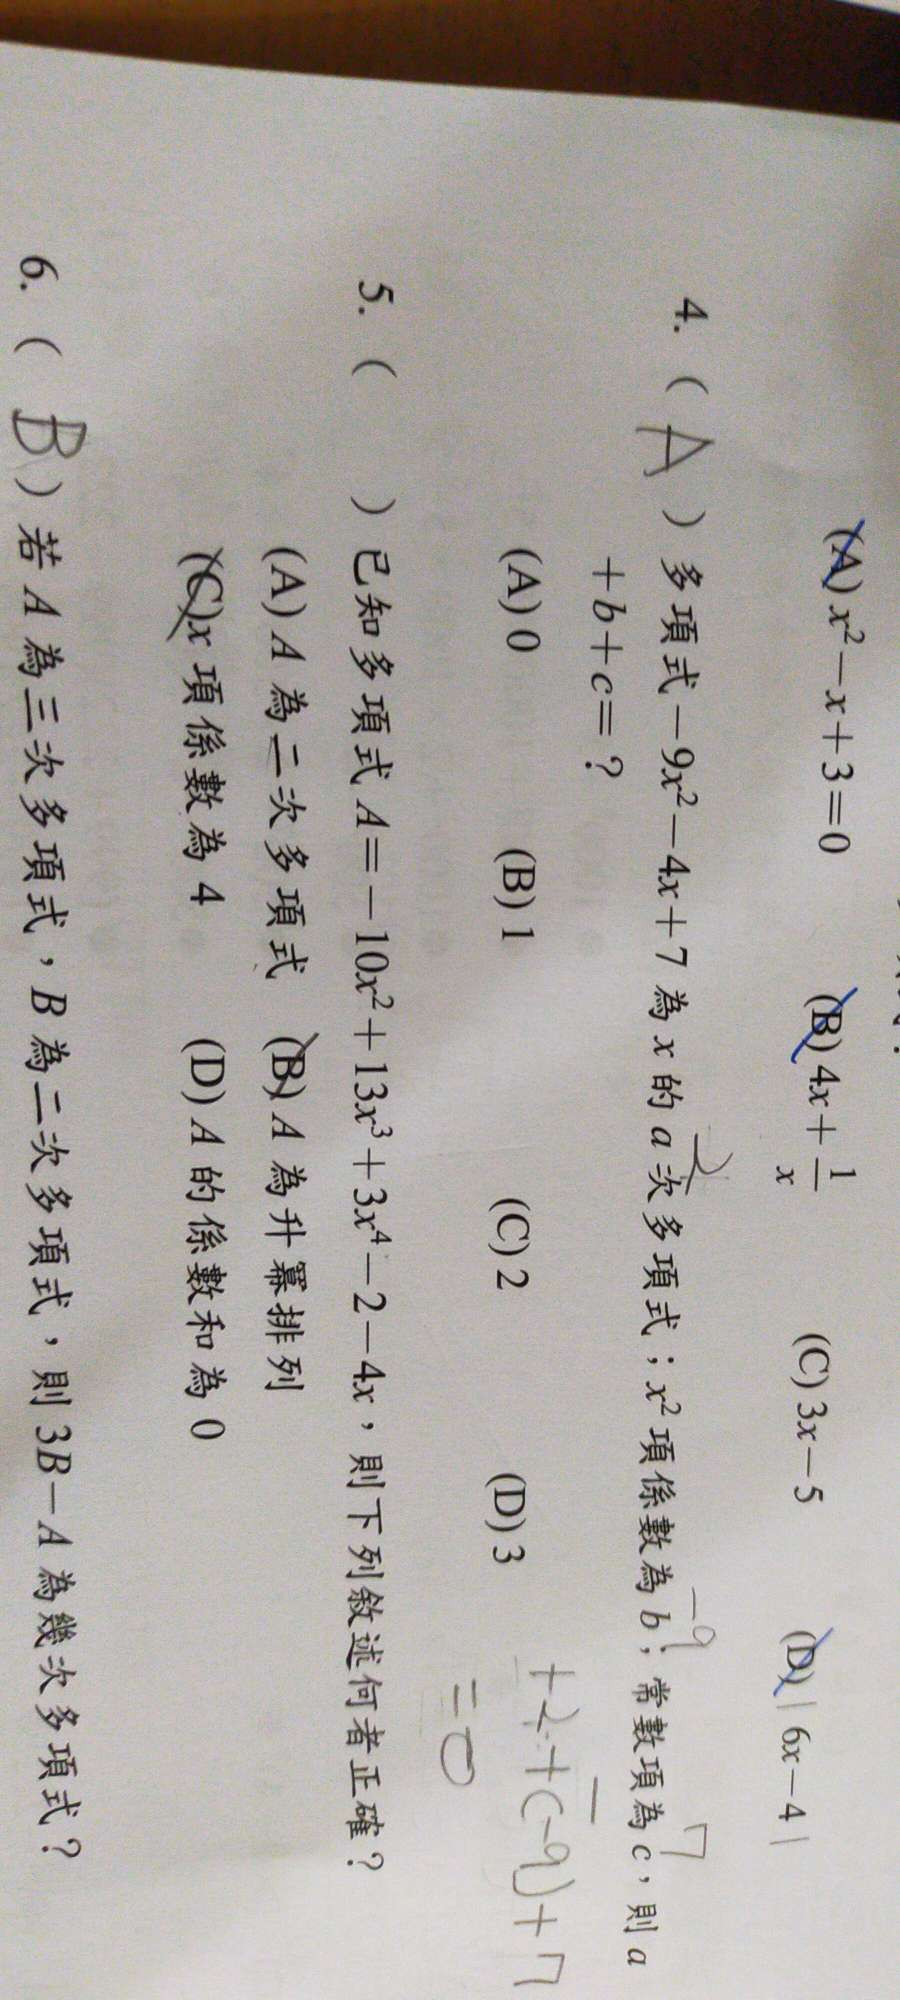 (A) x² − x + 3 = 0 (B) 4x + 1/x (C) 3x − 5 (D) | 6x − 4 |
4. ( A ) 多項式 −9x² − 4x + 7 為 x 的 a 次多項式；x² 項係數為 b；常數項為 c，則 a
2 −9 7
+ b + c = ?
(A) 0 (B) 1 (C) 2 (D) 3
+2 + (−9) + 7
= 0
5. ( ) 已知多項式 A = −10x² + 13x³ + 3x⁴ − 2 − 4x，則下列敘述何者正確？
(A) A 為二次多項式 (B) A 為升冪排列
(C) x 項係數為 4 (D) A 的係數和為 0
6. ( B ) 若 A 為三次多項式，B 為二次多項式，則 3B − A 為幾次多項式？